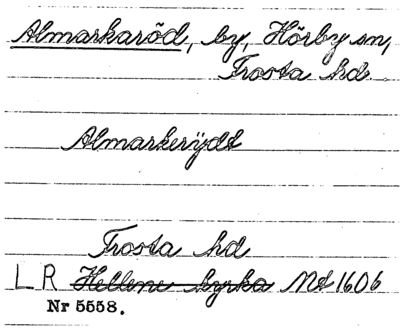 Almarkaröd, by, Hörby sn,
Frosta hd.
Almarkerÿdt
Frosta hd
L R Hellene kyrka Md 1606
Nr 5558.